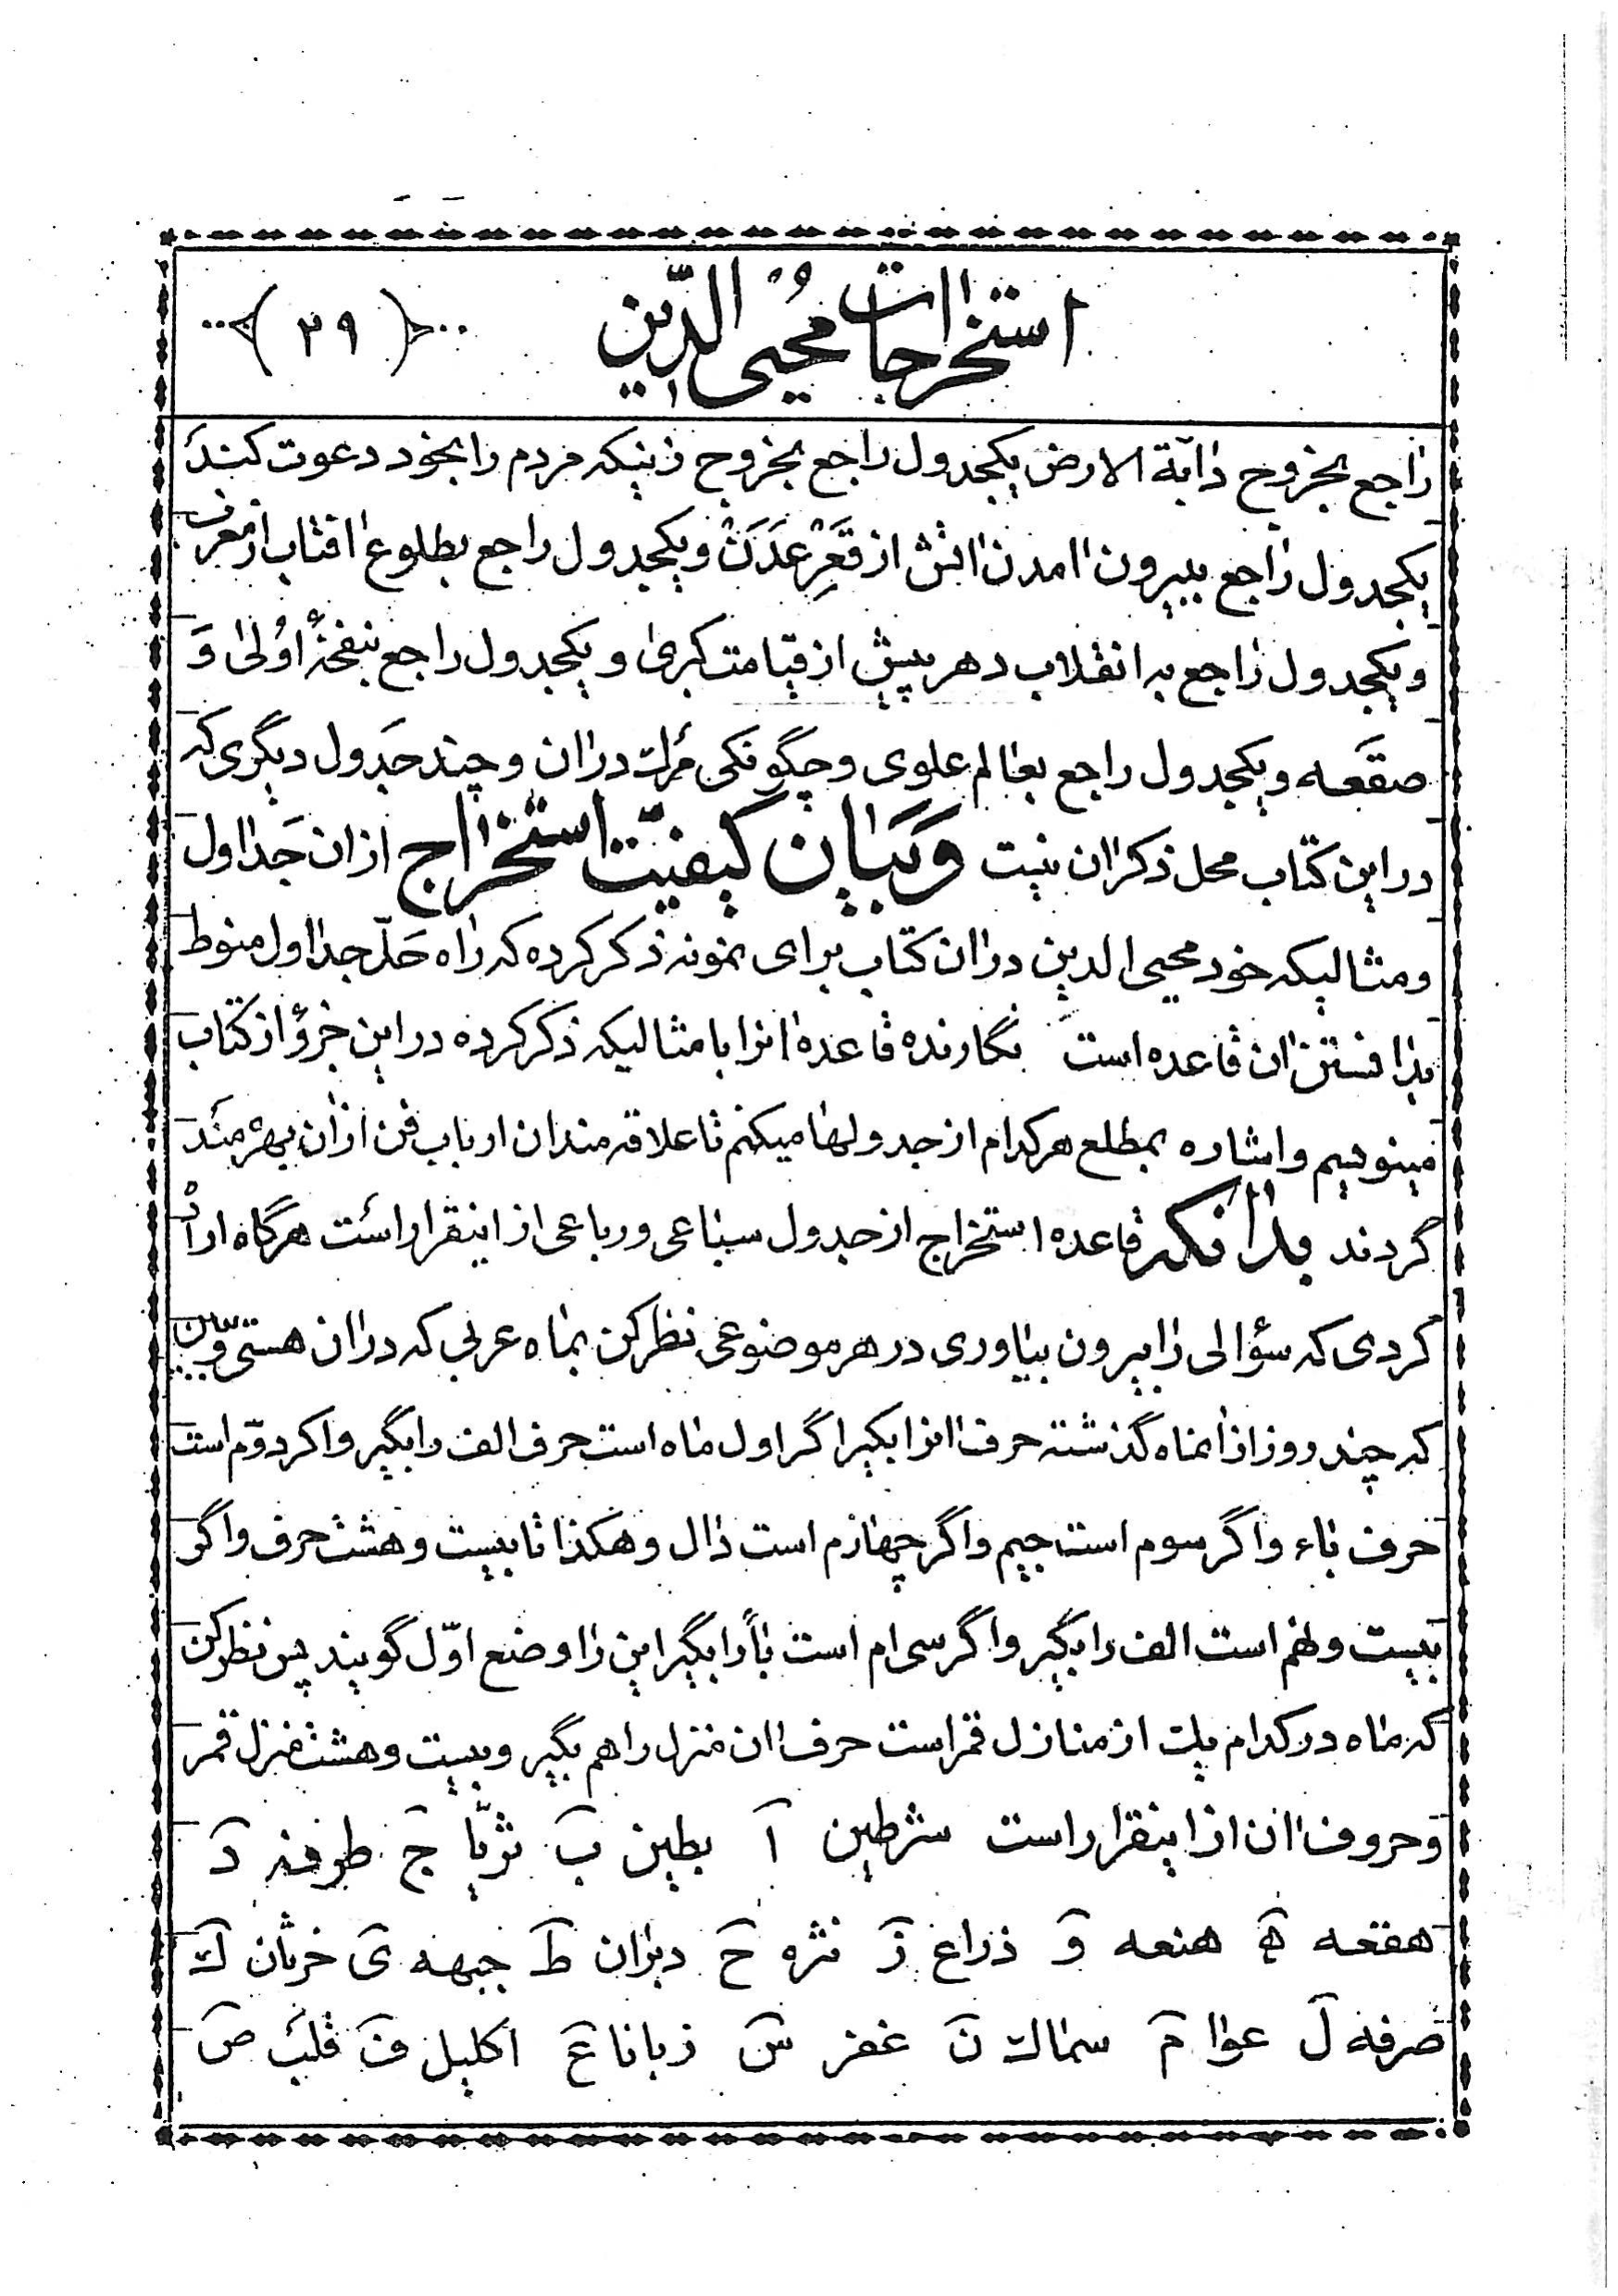 استخراجات محیی الدین
(۲۹)
راجع بخروج دابة الارض یکجدول راجع بخروج زنیکه مردم را بخود دعوت کند
یکجدول راجع ببیرون امدن اتش از قَعَرِ عَدَنْ و یکجدول راجع بطلوع افتاب از مغرب
و یکجدول راجع به انقلاب دهر پیش از قیامت کبری و یکجدول راجع بنفخهٔ اوُلی وَ
صقعه و یکجدول راجع بعالم علوی و چگونکی در ان و چند جدول دیگری که
در این کتاب محل ذکر ان نیست وَ بَیان کیفیّت استخراج از ان جَداول
و مثالیکه خود محیی الدین در ان کتاب برای نمونه ذکر کرده که راه حَلّ جداول منوط
بدانستن ان قاعده است نگارنده قاعده انرا با مثالیکه ذکر کرده در این جزؤ از کتاب
مینویسم و اشاره بمطلع هر کدام از جدولها میکنم تا علاقه مندان ارباب فن از ان بهره مند
گردند بدانکه قاعده استخراج از جدول سباعی و رباعی از اینقرار است هر گاه اراده
کردی که سؤالی را بیرون بیاوری در هر موضوعی نظر کن بماه عربی که در ان هستی و ببین
که چند روز از انماه گذشته حرف انرا بکیر اگر اول ماه است حرف الف را بگیر و اکر دوّم است
حرف باء و اگر سوم است جیم و اگر چهارم است دال و هکذا تا بیست و هشت حرف و اگر
بیست و نهم است الف را بگیر و اگر سی ام است باً را بگیر این را وضع اوّل گویند پس نظر کن
که ماه در کدام یک از منازل قمر است حرف ان منزل را هم بگیر و بیست و هشت منزل قمر
و حروف ان از اینقرار است شرطین آ بطین ب ثریّا ج طرفه د
هقعه ه هنعه و ذراع ز نثره ح دبران ط جبهه ی خرتان ك
صرفه ل عوا م سماك ن غفر س زبانا ع اکلیل ف قلب ص